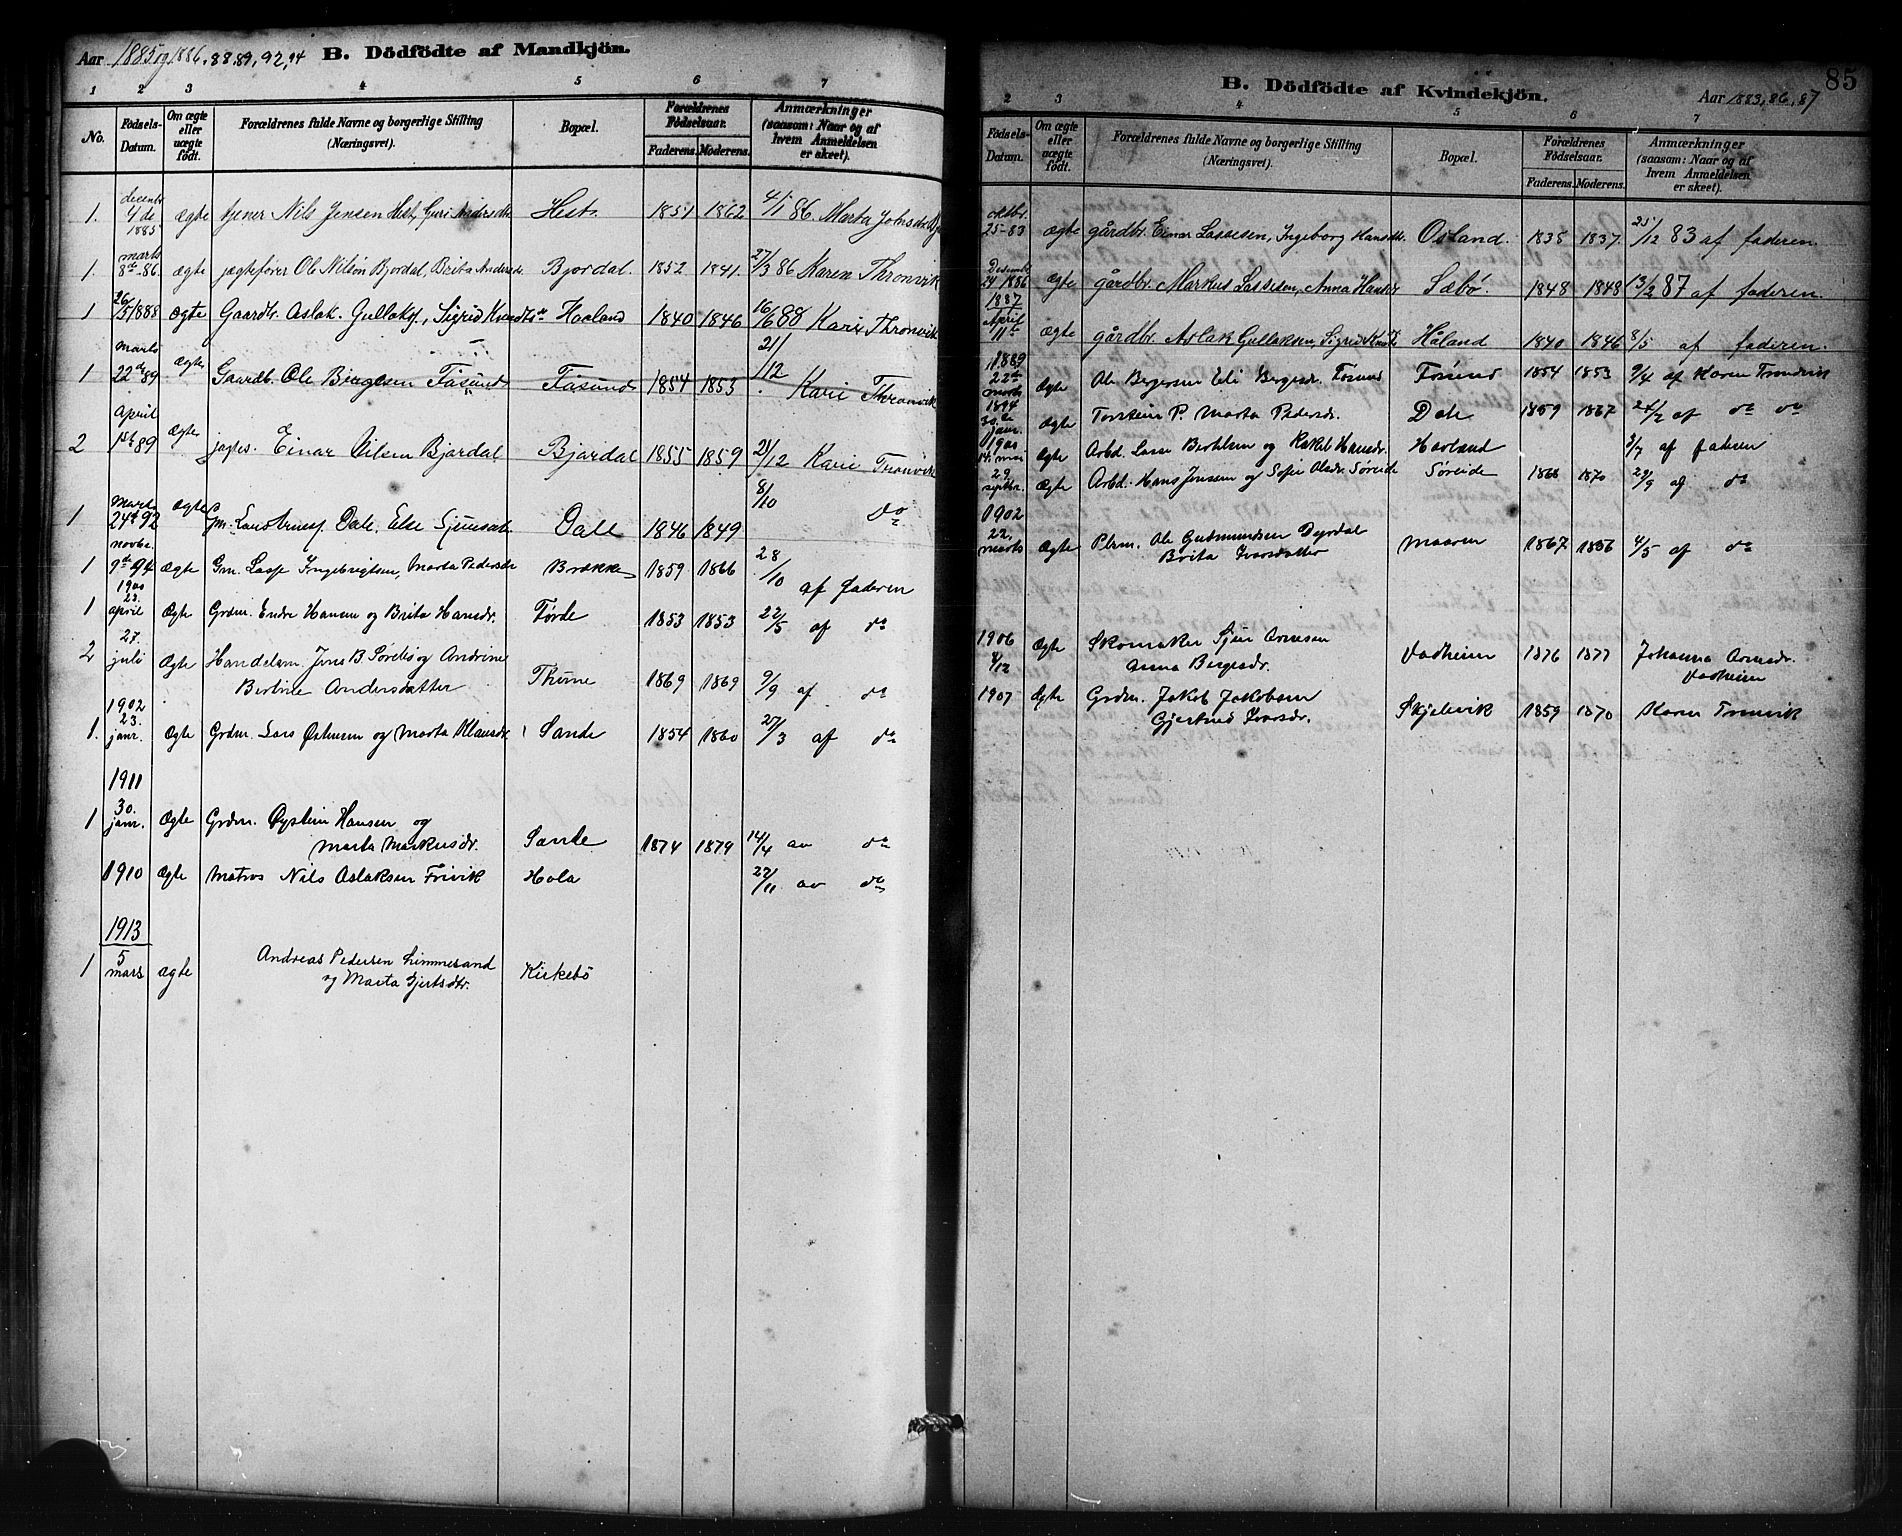 Aar 1885 og 1886, 88, 89, 92, 94 B. Dödfödte af Mandkjön.
1 2 3 4 5 6 7
No. Födsels-Datum. Om ægte eller uægte födt. Forældrenes fulde Navne og borgerlige Stilling (Næringsvei). Bopæl. Forældrenes Födselsaar. Faderens. Moderens. Anmærkninger (saasom: Naar og af hvem Anmeldelsen er skeet).
1. decembr 4de 1885 ægte tjener Nils Jensen Hest, Guri Andersdtr Hest 1851 1862 4/1 86. Marta Johnsdtr
1. marts 8de 86. ægte jægtefører Ole Nilsen Bjordal, Brita Andersdr Bjordal. 1852 1841. 27/3 86 Karen Thronvik
1 26/5 1888 ægte Gaardbr Aslak Gullaks., Sigrid Knudtsdr Haaland 1840 1846 16/6 88 Kari Thronvik
1 marts 22de 89 ægte Gaardb. Ole Birgesen Täsund Täsund 1854 1853 21/12 Kari Thronvik
2 april 1ste 89 ægte jægtes. Einar Nilsen Bjordal Bjordal 1855 1859 21/12 Kari Tronvik
1 Marts 24de 92 ægte Gm. Lars Arnesf. Dale, Else Sjursdtr Dale 1846 1849 8/10 do
1 novbr. 9de 94 ægte Gm. Lasse Ingebrigtsen, Marta Pedersdr Brække 1859 1866 28/10 af faderen
1 1900 23. april Ægte Grdm. Endre Hansen og Brita Hansdr. Førde 1853 1853 22/5 af do
2 27. juli Ægte Handelsm. Jens B. Sørebø og Andrine
Bertine Andersdatter Thune 1869 1869 9/9 af do
1. 1902 23. janr. Ægte Grdm. Lars Østensen og Marta Klausdr Sande 1854 1860 27/3 af do
1911
1 30. janr. Ægte Grdm. Øystein Hansen og
Marta Markusdr. Sande 1874 1879 14/4 av do
1910 Ægte Matros Nils Aslaksen Trivik Hola 27/11 av do
1913
1 5 mars ægte Andreas Pedersen Limmesand
og Marta Gjertsdtr. Kirkebö
B. Dödfödte af Kvindekjön. Aar 1883, 86, 87 85
2 3 4 5 6 7
Födsels-Datum. Om ægte eller uægte födt. Forældrenes fulde Navne og borgerlige Stilling (Næringsvei). Bopæl. Forældrenes Födselsaar. Faderens. Moderens. Anmærkninger (saasom: Naar og af hvem Anmeldelsen er skeet).
oktbr. 25-83 ægte gårdbr. Einar Lassesen, Ingeborg Hansdtr. Osland. 1835 1837. 25/12 83 af faderen.
Desembr 24 1886 ægte gårdbr. Markus Lassesen, Anna Hansdr Sæbø. 1848 1848 13/2 87 af faderen.
1887 April 11te ægte gårdbr. Aslak Gullaksen, Sigrid Knutsdtr Håland 1840 1846 8/5 af faderen.
1889 22de marts Ægte Ole Bergesen Eli Bergesdr. Tøsund Tøsund 1854 1853 9/4 af Karen Trondvik
1894 30te janr. Ægte Torstein P. Marta Pedersdr. Dale 1859 1867 24/2 af do do
1900 14. mai Ægte Arbd. Lasse Bertelsen og Rakel Hansdr. Haaland 3/7 af faderen
29 septbr. Ægte Arbd. Hans Jensen og Sofie Olsdr. Søreide Søreide 1868 1870 29/9 af do
1902 22. marts Ægte Plsm. Ole Gudmundsen Dyrdal
Brita Ivarsdatter Maaren 1867 1856 4/5 af do
1906 4/12 Ægte Skomaker Sjur Arnesen
Anna Bergesdr. Vadheim 1876 1877 Johanna Arnesdr. Vadheim
1907 Ægte Grdm. Jakob Jakobsen
Gjertrud Ivarsdr. Skjelvik 1859 1870 Karen Tronvik